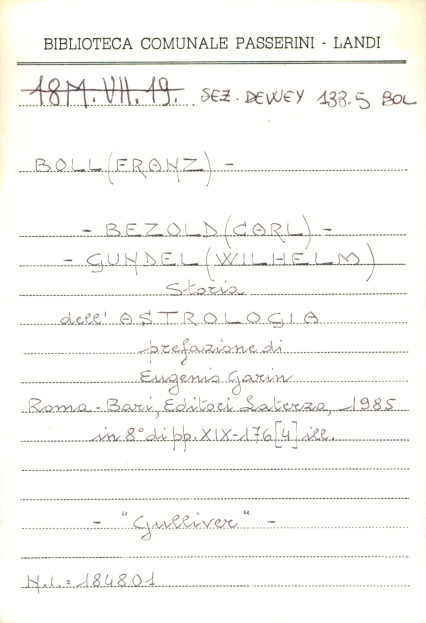 BIBLIOTECA COMUNALE PASSERINI - LANDI
18M.VII.19. SEZ. DEWEY 133.5 BOL
BOLL (FRANZ) -
- BEZOLD (CARL) -
- GUNDEL (WILHELM)
Storia
dell' ASTROLOGIA
prefazione di
Eugenio Garin
Roma - Bari, Editori Laterza, 1985
in 8° di pp. XIX-176 [4] ill.
- "Gulliver" -
N.I. = 184801